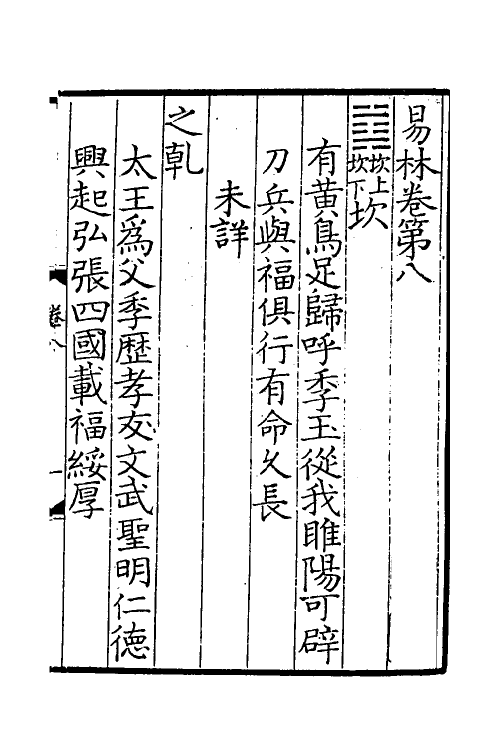 易林卷第八
䷜坎上坎下坎
有黄鳥足歸呼季玉從我睢陽可辟
刀兵與福俱行有命乆長
未詳
之乹
太王爲父季歷孝友文武聖明仁德
興起弘張四國載福綏厚
卷八
一